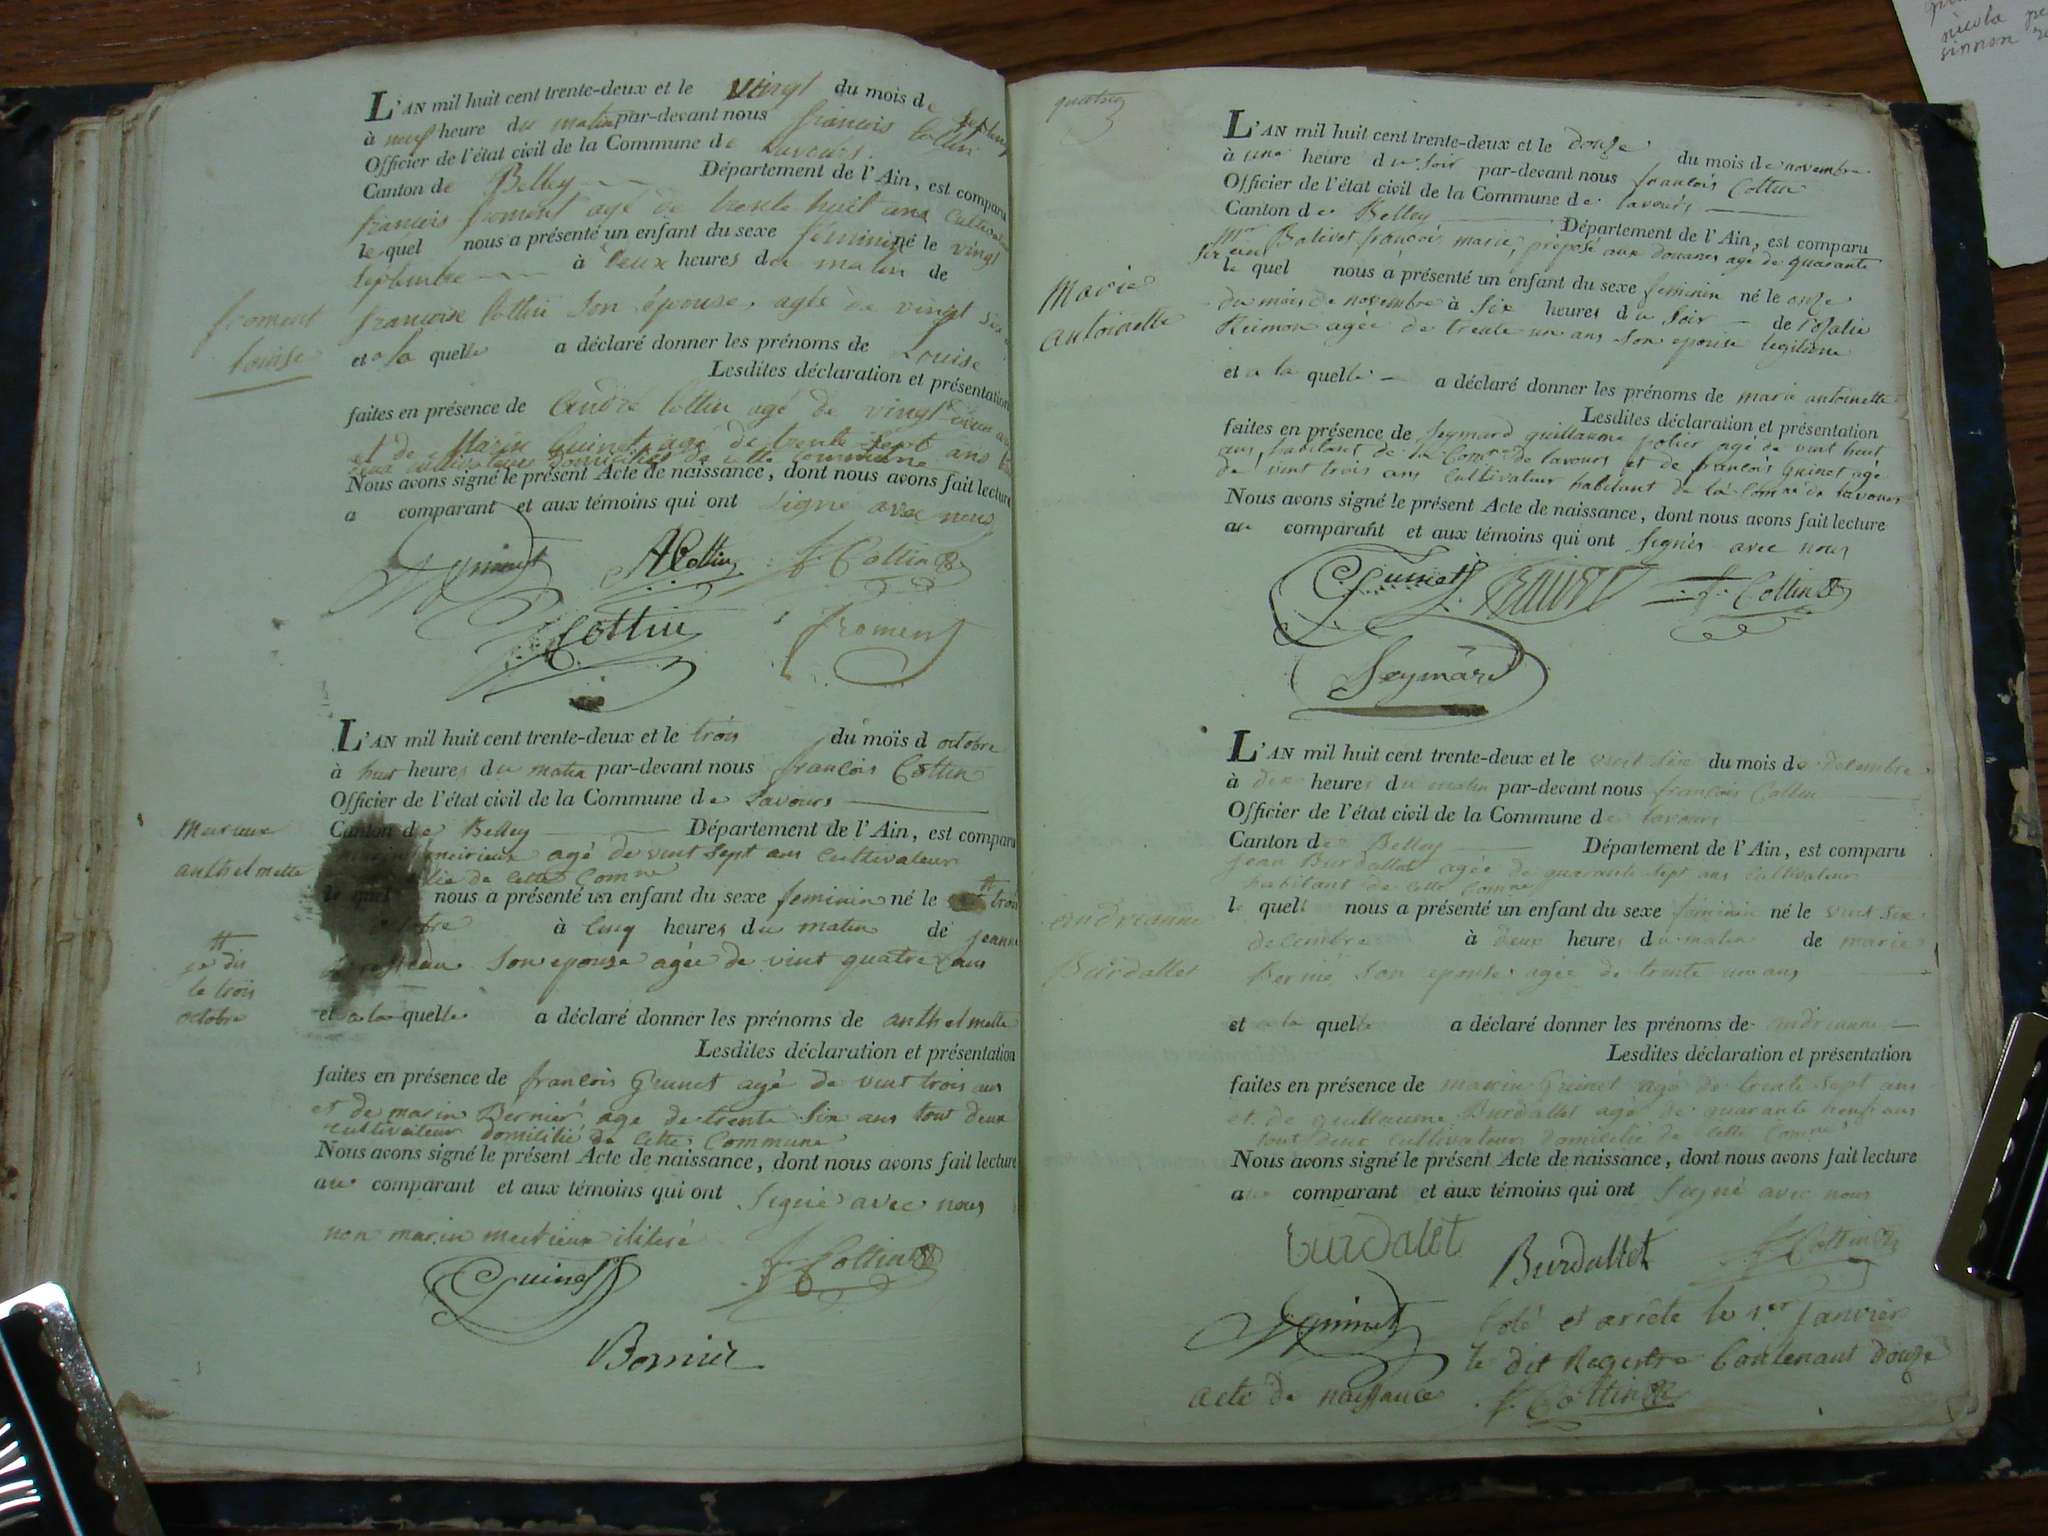 L'AN mil huit cent trente-deux et le vingt du mois de septembre
à neuf heure du matin par-devant nous françois Cottin
Officier de l'état civil de la Commune de Lavours.
Canton de Belley Département de l'Ain, est comparu
françois froment agé de trente huit ans Cultivateur
le quel nous a présenté un enfant du sexe feminin né le vingt
septembre à deux heures du matin de
froment
françoise Cottin son épouse, agée de vingt six
Louise
et a la quelle a déclaré donner les prénoms de Louise
Lesdites déclaration et présentation
faites en présence de André Cottin agé de vingt
et de Marin Guinet agé de trente sept ans
deux cultivateurs domiciliés de cette commune
Nous avons signé le présent Acte de naissance, dont nous avons fait lecture
a comparant et aux témoins qui ont signé avec nous
Mguinet ACottin f. Cottin
Cottin froment
L'AN mil huit cent trente-deux et le trois du mois d octobre
à huit heures du matin par-devant nous françois Cottin
Officier de l'état civil de la Commune de Lavours
Canton de Belley Département de l'Ain, est comparu
anthelmette
agé de vint sept ans cultivateur
de cette Comne
le quel nous a présenté un enfant du sexe feminin né le trois
à cinq heures du matin de jeanne
son epouse agée de vint quatre ans
je dis
le trois
octobre
et a la quelle a déclaré donner les prénoms de anthelmette
Lesdites déclaration et présentation
faites en présence de françois Guinet agé de vint trois ans
et de marin Bernier age de trente six ans tout deux
cultivateur domicilié de cette Commune
Nous avons signé le présent Acte de naissance, dont nous avons fait lecture
au comparant et aux témoins qui ont Signé avec nous
non marin ilitéré
Guinet f. Cottin
Bernier
L'AN mil huit cent trente-deux et le douze du mois de novembre
à une heure du soir par-devant nous françois Cottin
Officier de l'état civil de la Commune de lavours
Canton de Belley Département de l'Ain, est comparu
Mr Bolivet françois marie, préposé aux douanes age de quarante
six ans
le quel nous a présenté un enfant du sexe feminin né le onze
Marie
antoinette
du mois de novembre à six heures du soir de rosalie
Reimon agée de trente un ans son epouse legitime
et a la quelle a déclaré donner les prénoms de marie antoinette
Lesdites déclaration et présentation
faites en présence de Seymard guillaume potier agé de vint huit
ans, habitant de la Comne de lavours et de françois Guinet agé
de vint trois ans Cultivateur habitant de la Comne de lavours
Nous avons signé le présent Acte de naissance, dont nous avons fait lecture
au comparant et aux témoins qui ont Signés avec nous
Guinet f. Cottin
Seymard
L'AN mil huit cent trente-deux et le vint six du mois de decembre
à dix heures du matin par-devant nous françois Cottin
Officier de l'état civil de la Commune de lavours
Canton de Belley Département de l'Ain, est comparu
jean Burdallet agée de quarante sept ans cultivateur
habitant de cette Comne
le quel nous a présenté un enfant du sexe feminin né le vint six
andréanne
decembre à deux heures du matin de marie
Burdallet
Bernie son epouse agée de trente un ans
et a la quelle a déclaré donner les prénoms de andréanne
Lesdites déclaration et présentation
faites en présence de marin Guinet agé de trente sept ans
et de guillaume Burdallet agé de quarante neuf ans
tout deux Cultivateur domicilié de cette Comne
Nous avons signé le présent Acte de naissance, dont nous avons fait lecture
au comparant et aux témoins qui ont Segné avec nous
Burdalet Burdallet f. Cottin
Mguinet Colé et arrete le 1er janvier
le dit Registre Contenant douze
acte de naissance f. Cottin